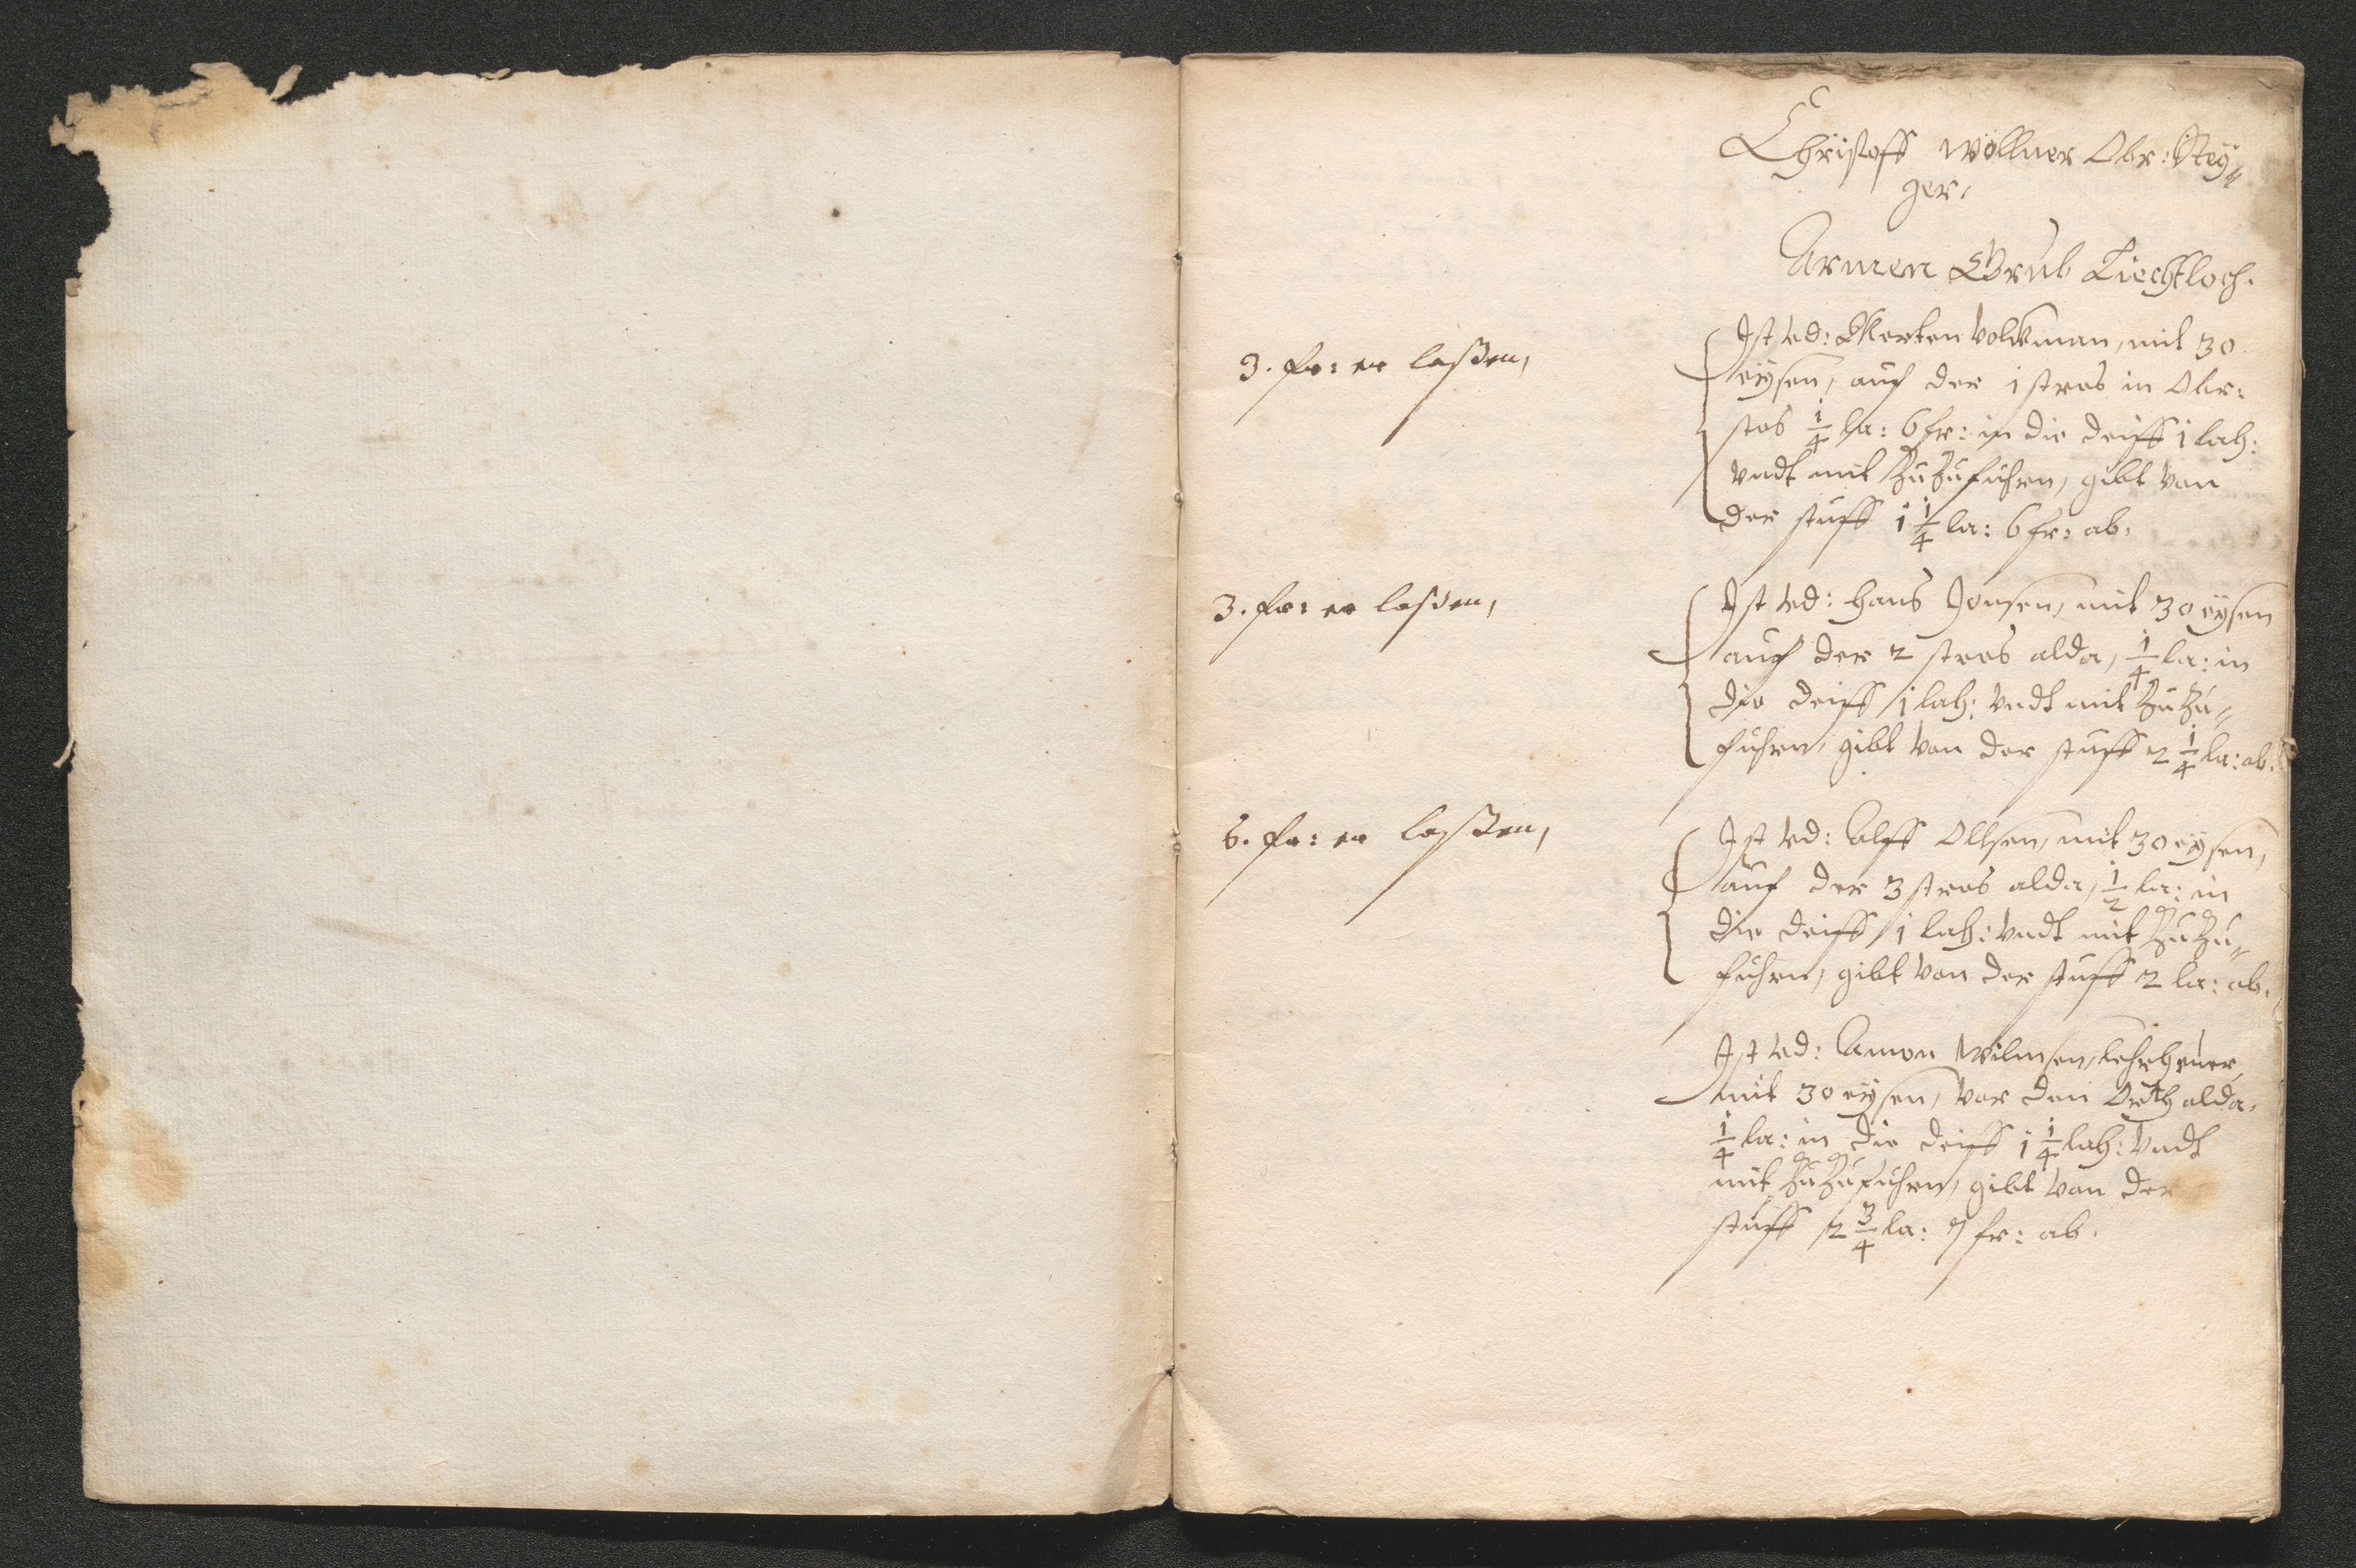 Christoff Wöllner Obr: Stey„
ger.
Armen Grub Liechtloch.
3. fr: er laßen,
Ist vd: Merten Volckman, mit 30
eÿsen, auf der 1 stros in Obr:
stos 1/4 la: 6 fr: in die deiff 1 lah:
vndt mit Zu Zufuhren, gibt von
der stuff 1 1/4 la: 6 fr: ab.
3. fr: er laßen,
Ist vd: Hans Jonsen, mit 30 eÿsen
auf der 2 stros alda, 1/4 la: in
die deiff 1 lah: vndt mit Zu Zu„
fuhren, gibt von der stuff 2 1/4 la: ab.
6. fr: er laßen,
Ist vd: Alff Ollsen, mit 30 eÿsen,
auf der 3 stros alda, 1/2 la: in
die deiff 1 lah: vndt mit Zu Zu„
fuhren, gibt von der stuff 2 la: ab.
Ist vd: Amon Wilmsen, Lehrheuer,
mit 30 eÿsen, vor den Orth alda.
1/4 la: in die deiff 1 1/4 lah: vndt
mit Zu Zufuhren, gibt von der
stuff 2 3/4 la: 9 fr: ab.